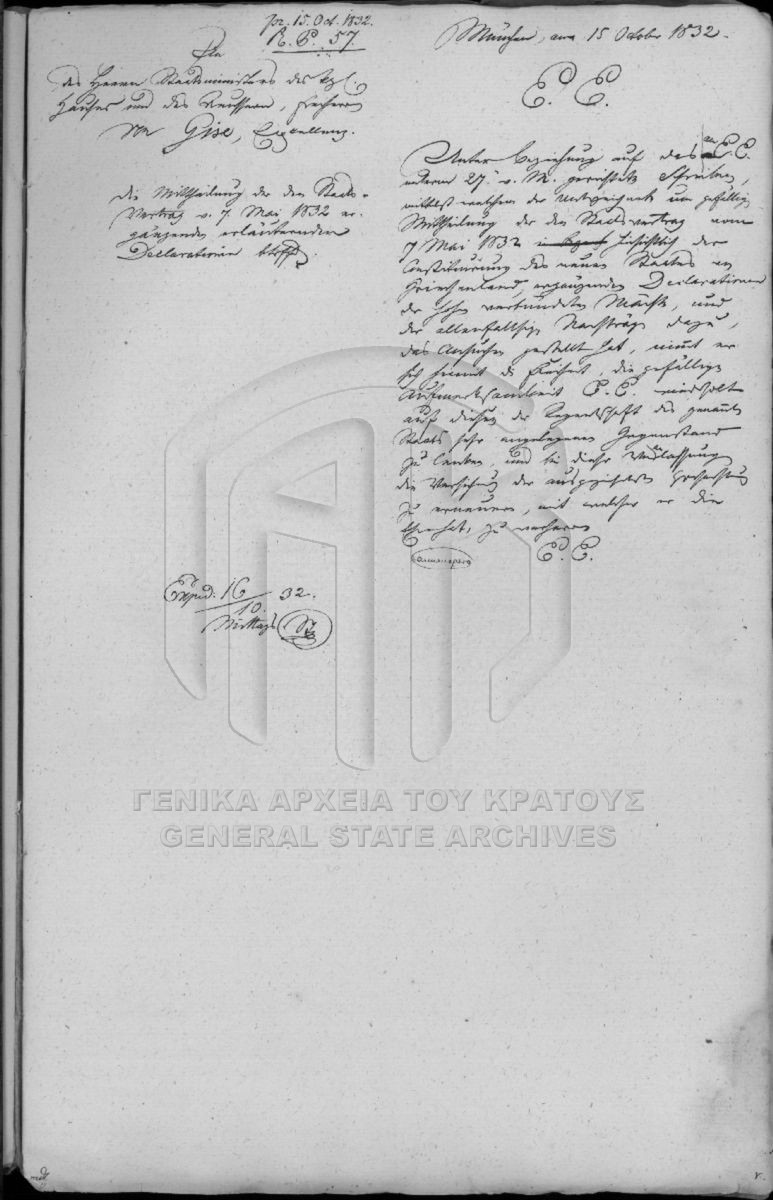 pr. 15. Oct. 1832.
R. P. 57.
An
des Herrn Staatsministers des kgl.
Hauses und des Aeussern, Freiherrn
von Gise, Excellenz.
die Mittheilung der den Staats-
Vertrag v. 7. Mai 1832 er-
gänzenden erläuternden
Declarationen betreff.
München, am 15 October 1832.
E. E.
Unter Beziehung auf das an E. E.
unterm 27. v. M. gerichtete Schreiben,
mittelst welchem der Unterzeichnete um gefällige
Mittheilung der den Staatsvertrag vom
7 Mai 1832 hinsichtlich der
Constituirung des neuen Staates in
Griechenland, ergänzenden Declarationen
der hohen verbündeten Mächte, und
der allenfallsigen Nachträge dazu,
das Ansuchen gestellt hat, nimmt er
sich hiemit die Freiheit, die gefällige
Aufmerksamkeit E. E. wiederholt
auf diesen der Regentschaft des genannten
Staats sehr angelegenen Gegenstand
zu lenken, und bei dieser Veranlassung
die Versicherung der ausgezeichneten Hochachtung
zu erneuern, mit welcher er die
Ehre hat, zu verharren
E. E.
Armansperg
Exped. 16/10. 32.
Mittags
ΓΕΝΙΚΑ ΑΡΧΕΙΑ ΤΟΥ ΚΡΑΤΟΥΣ
GENERAL STATE ARCHIVES